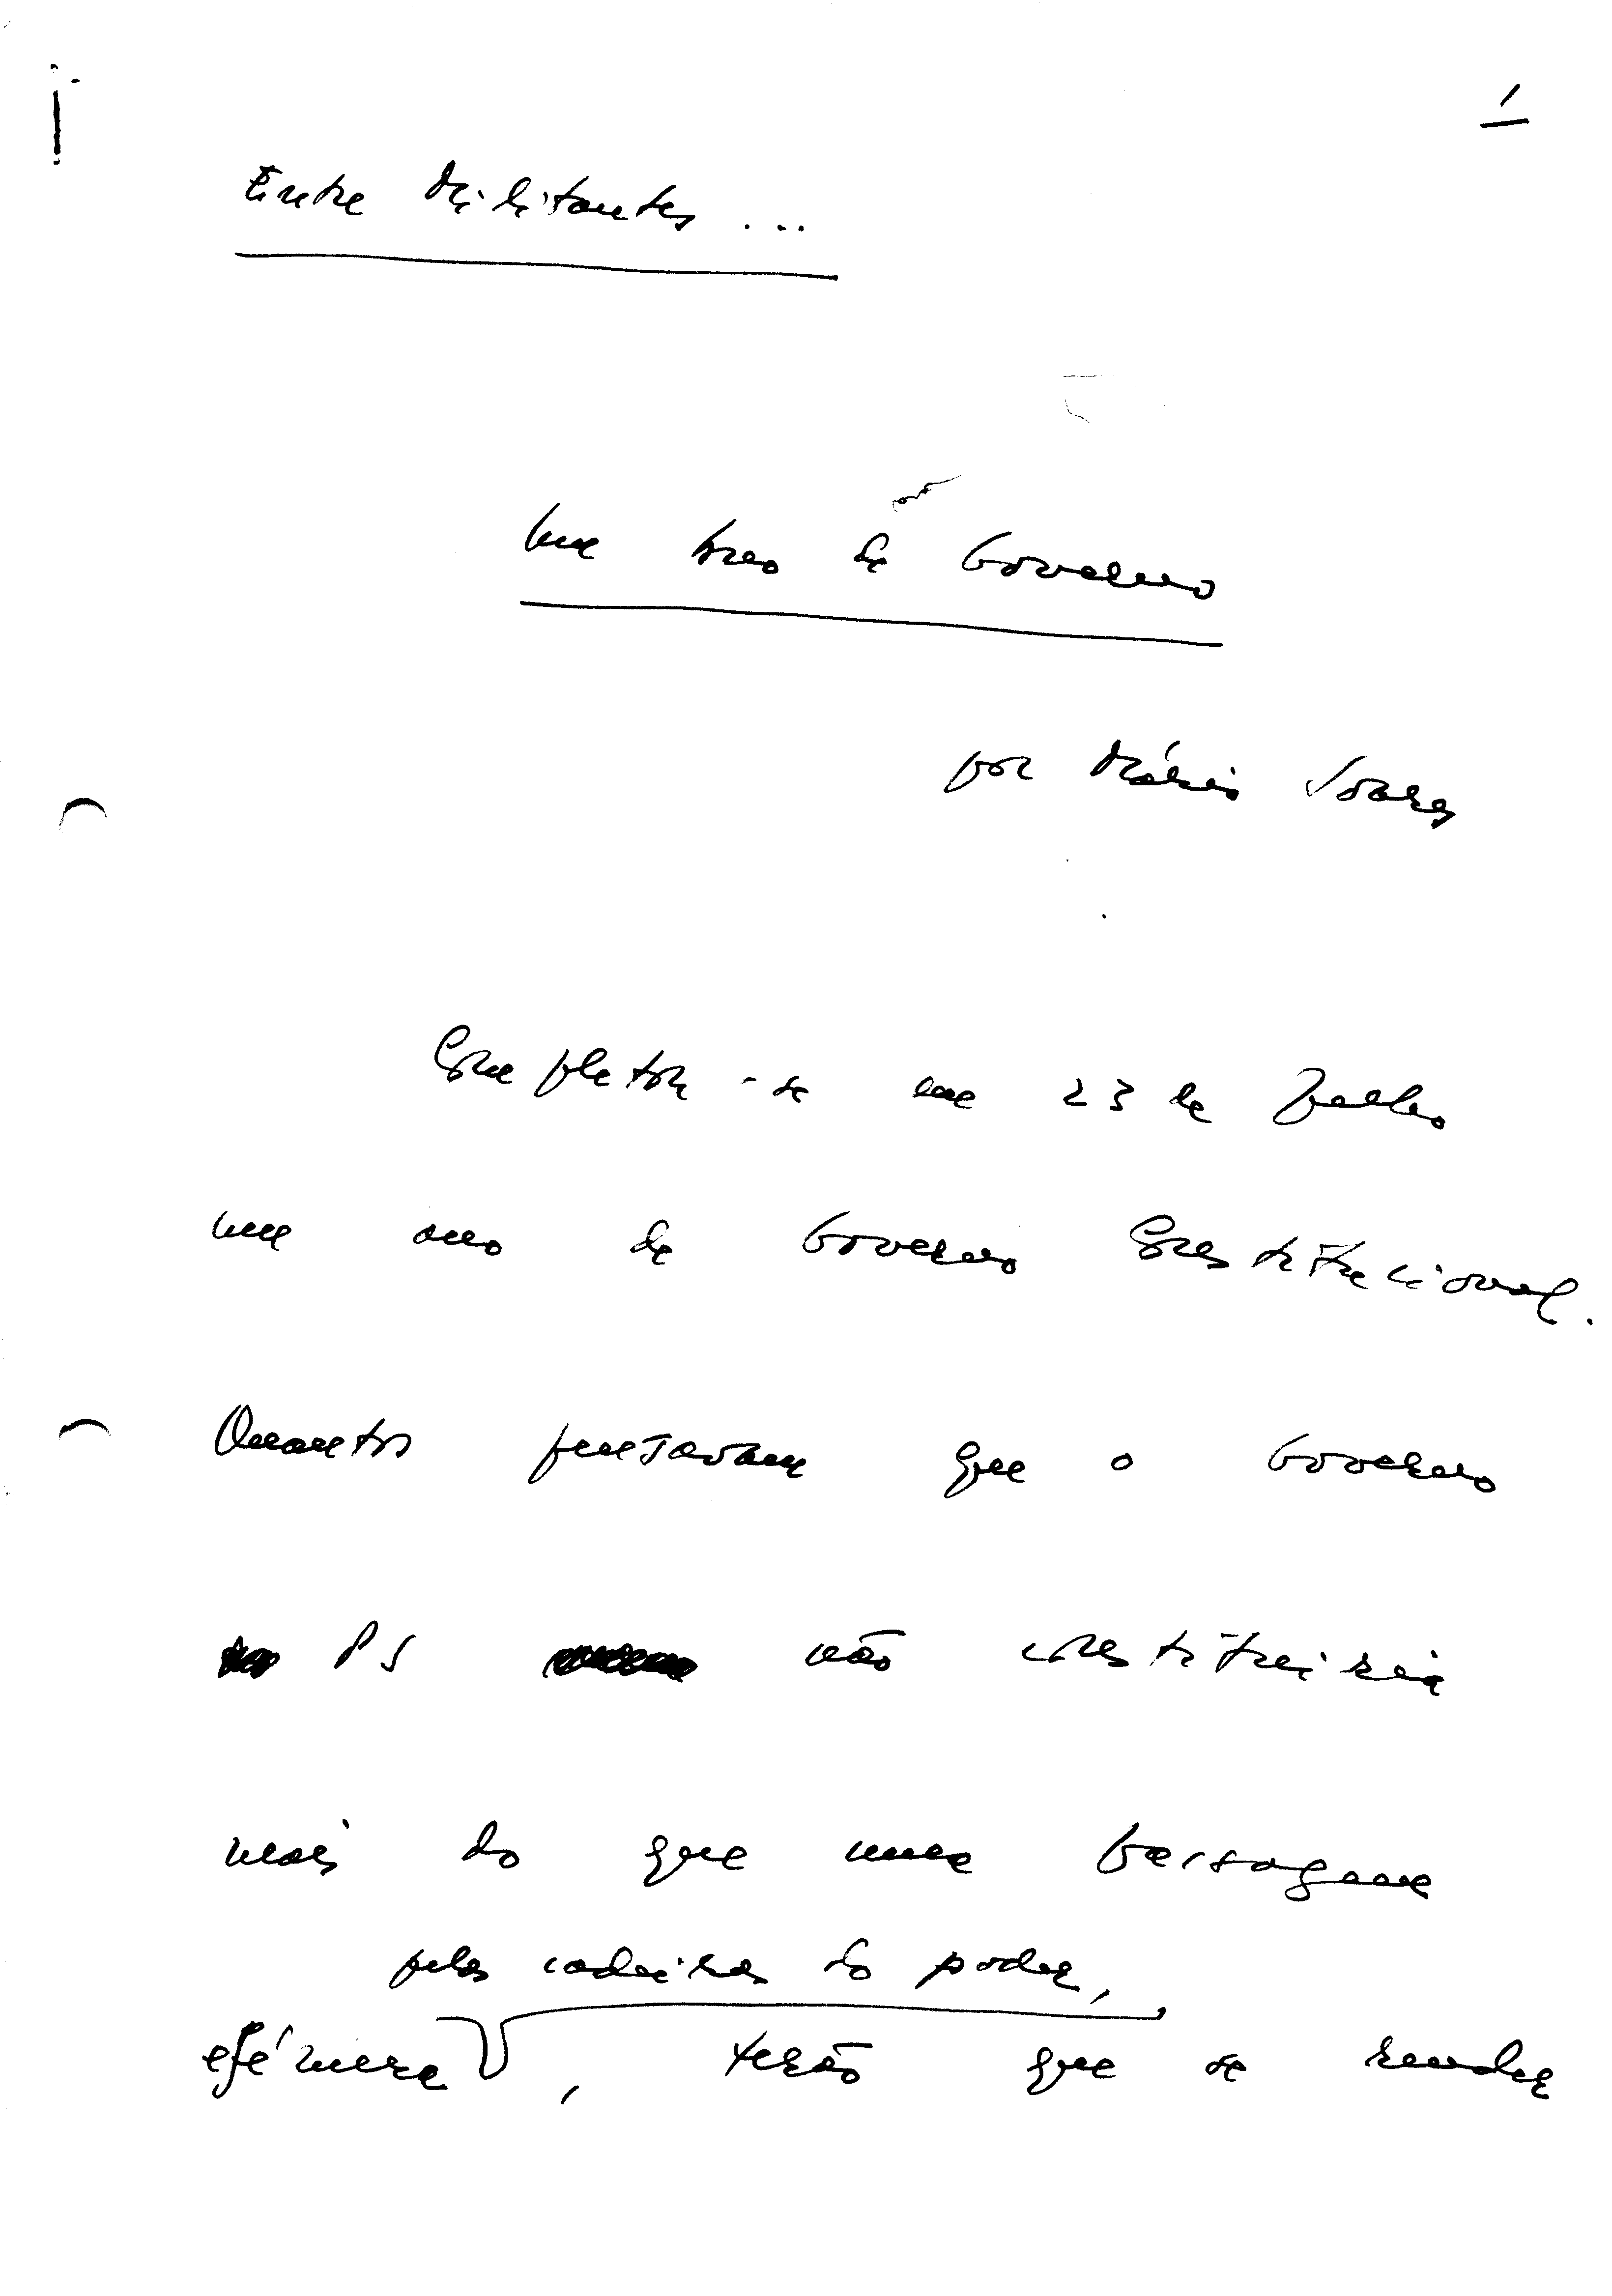 1
Entre Militantes ...
Um Ano de Governo
por Mário Soares
Completou-se em 23 de Julho
um ano de Governo Constitucional.
Quantos pensavam que o Governo
PS não constituiria
mais do que uma
pelas cadeiras do poder,
efémera, terão que se render